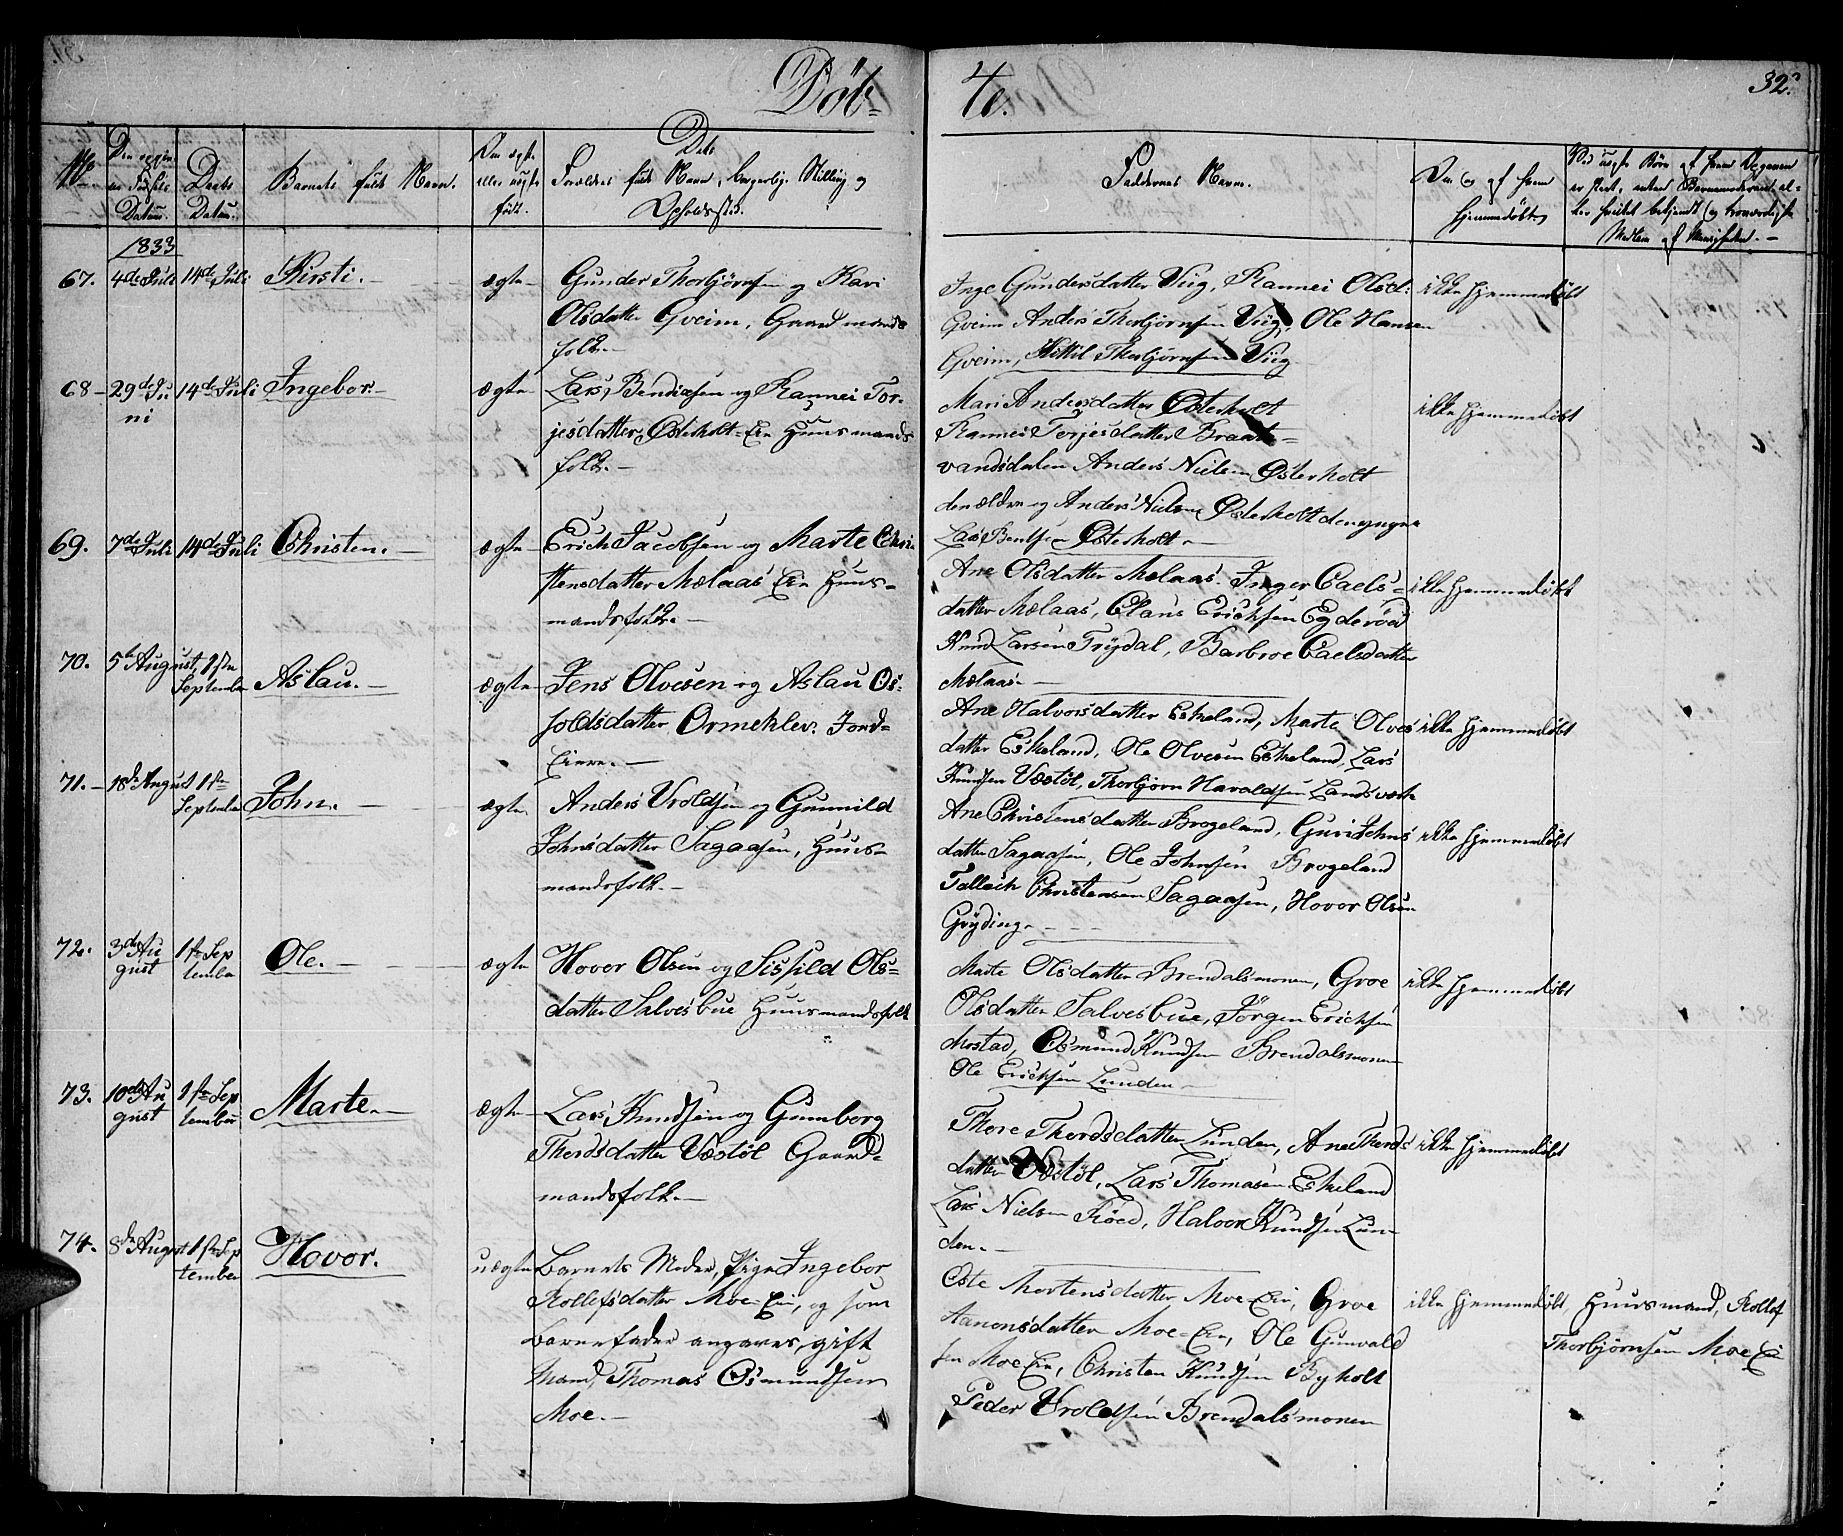 Døbte.
32.
No
Dets Datum.
Barnets fulde Navn.
Om ægte eller uægte født.
Forældres fulde Navn, borgerlige Stilling og Opholdssted.
Faddernes Navne.
Om og af hvem hjemmedøbt.
1833
67. 4de Juli 14de Juli Kirsti.— ægte
Gunder Thorbjørnsen og Kari
Olsdatter Gveim, Gaardmands
folk.—
Inge Gundersdatter Viig, Rannei Olsd:
Gveim Anders Thorbjørnsen Viig, Ole Hansen
Gveim, Kittil Thorbjørnsen Viig
ikke hjemmedøbt
68 29de Juni 14de Juli Ingebor.— ægte
Lars Bendixsen og Rannei Tor-
jesdatter Østerholt=Eie Huusmands
folk.—
Mari Andersdatter Østerholt
Rannei Terjesdatter Braat=
vandsdalen Anders Nielsen Østerholt
den ældre og Anders Nielsen Østerholt den yngre
Lars Bentsen Østerholt.—
ikke hjemmedøbt
69. 7de Juli 14de Juli Christen.— ægte
Erich Jacobsen og Marte Chri-
stensdatter Mælaas Eie Huus-
mandsfolk.—
Ane Olsdatter Mælaas. Inger Caels=
datter Mælaas, Claus Erichsen Egderød
Knud Larsen Trydal, Barbroe Caelsdatter
Mælaas.—
ikke hjemmedøbt
70. 5te August, 1ste September Aslau.— ægte
Jens Olvesen og Aslau Os-
foldsdatter Ormeklev. Jord-
Eiere.—
Ane Halvorsdatter Eskeland, Marte Olves
datter Eskeland, Ole Olvesen Eskeland, Lars
Knudsen Væstøl, Thorbjørn Haraldsen Landsverk
ikke hjemmedøbt
71.— 18de August 1ste September John.— ægte
Anders Vroldsen og Gunnild
Johnsdatter Sagaasen, Huus-
mandsfolk.—
Ane Christensdatter Brogeland, Guri Johns
datter Sagaasen, Ole Johnsen Brogeland
Tallach Christensen Sagaasen, Hovor Olsen
Gryding.
ikke hjemmedøbt
72. 3de August 1ste September Ole.— ægte
Hovor Olsen og Sisfild Ols-
datter Salvesbue Huusmandsfolk
Marte Olsdatter Brendalsmonen, Groe
Olsdatter Salvesbue, Jørgen Erichsen
Mostad, Osmund Knudsen Brendalsmonen
Ole Erichsen Lunden
ikke hjemmedøbt
73. 10de August 1ste September Marte.— ægte
Lars Knudsen og Gunnborg
Thordsdatter Væstøl Gaard-
mandsfolk.—
Thore Thordsdatter Lunden, Ane Thords
datter Væstøl, Lars Thomasen Eskeland
Lars Nielsen Frøed, Halvor Knudsen Lun-
den.—
ikke hjemmedøbt
74. 8de August 1ste September Hovor. uægte
Barnets Moder, Pige Ingebor
Rollefsdatter Moe-Eie, og som
Barnefader angaves, gift
Mand, Thomas Osmundsen
Moe.—
Este Mortensdatter Moe-Eie, Groe
Aanonsdatter Moe-Eie, Ole Gunvald
sen Moe Eie, Christen Knudsen Byholt
Peder Vroldsen Brendalsmonen
ikke hjemmedøbt
Huusmand, Rollef
Thorbjørnsen Moe Eie